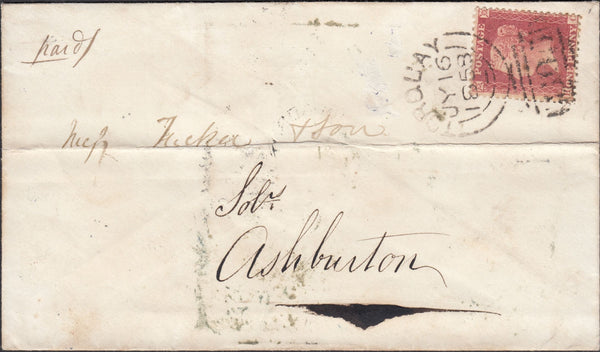 paid
Messrs Tucker & Son
Solrs
Ashburton
TORQUAY
JY 16
1858
POSTAGE
ONE PENNY